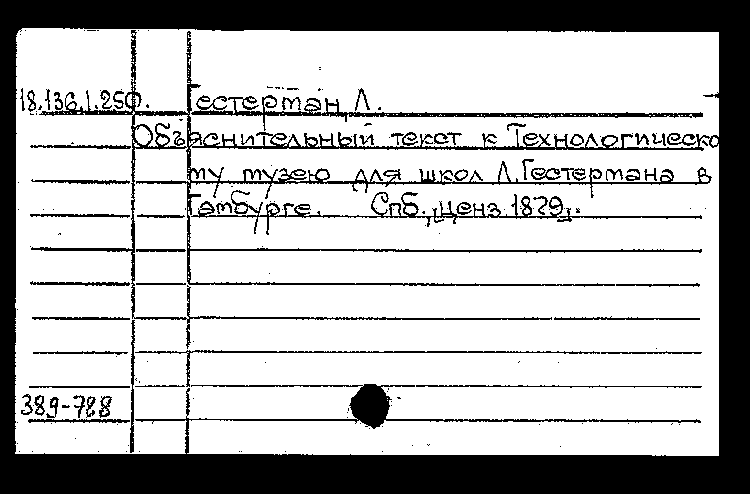 18.136.1.250. Гестерман, Л.
Объяснительный текст к Технологическо
му музею для школ Л.Гестермана в
Гамбурге. Спб., ценз. 1879.
389-788